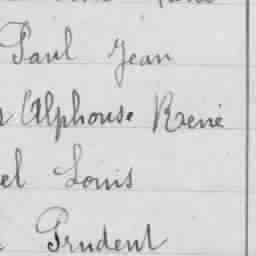 Paul Jean
Alphonse René
el Louis
Prudent